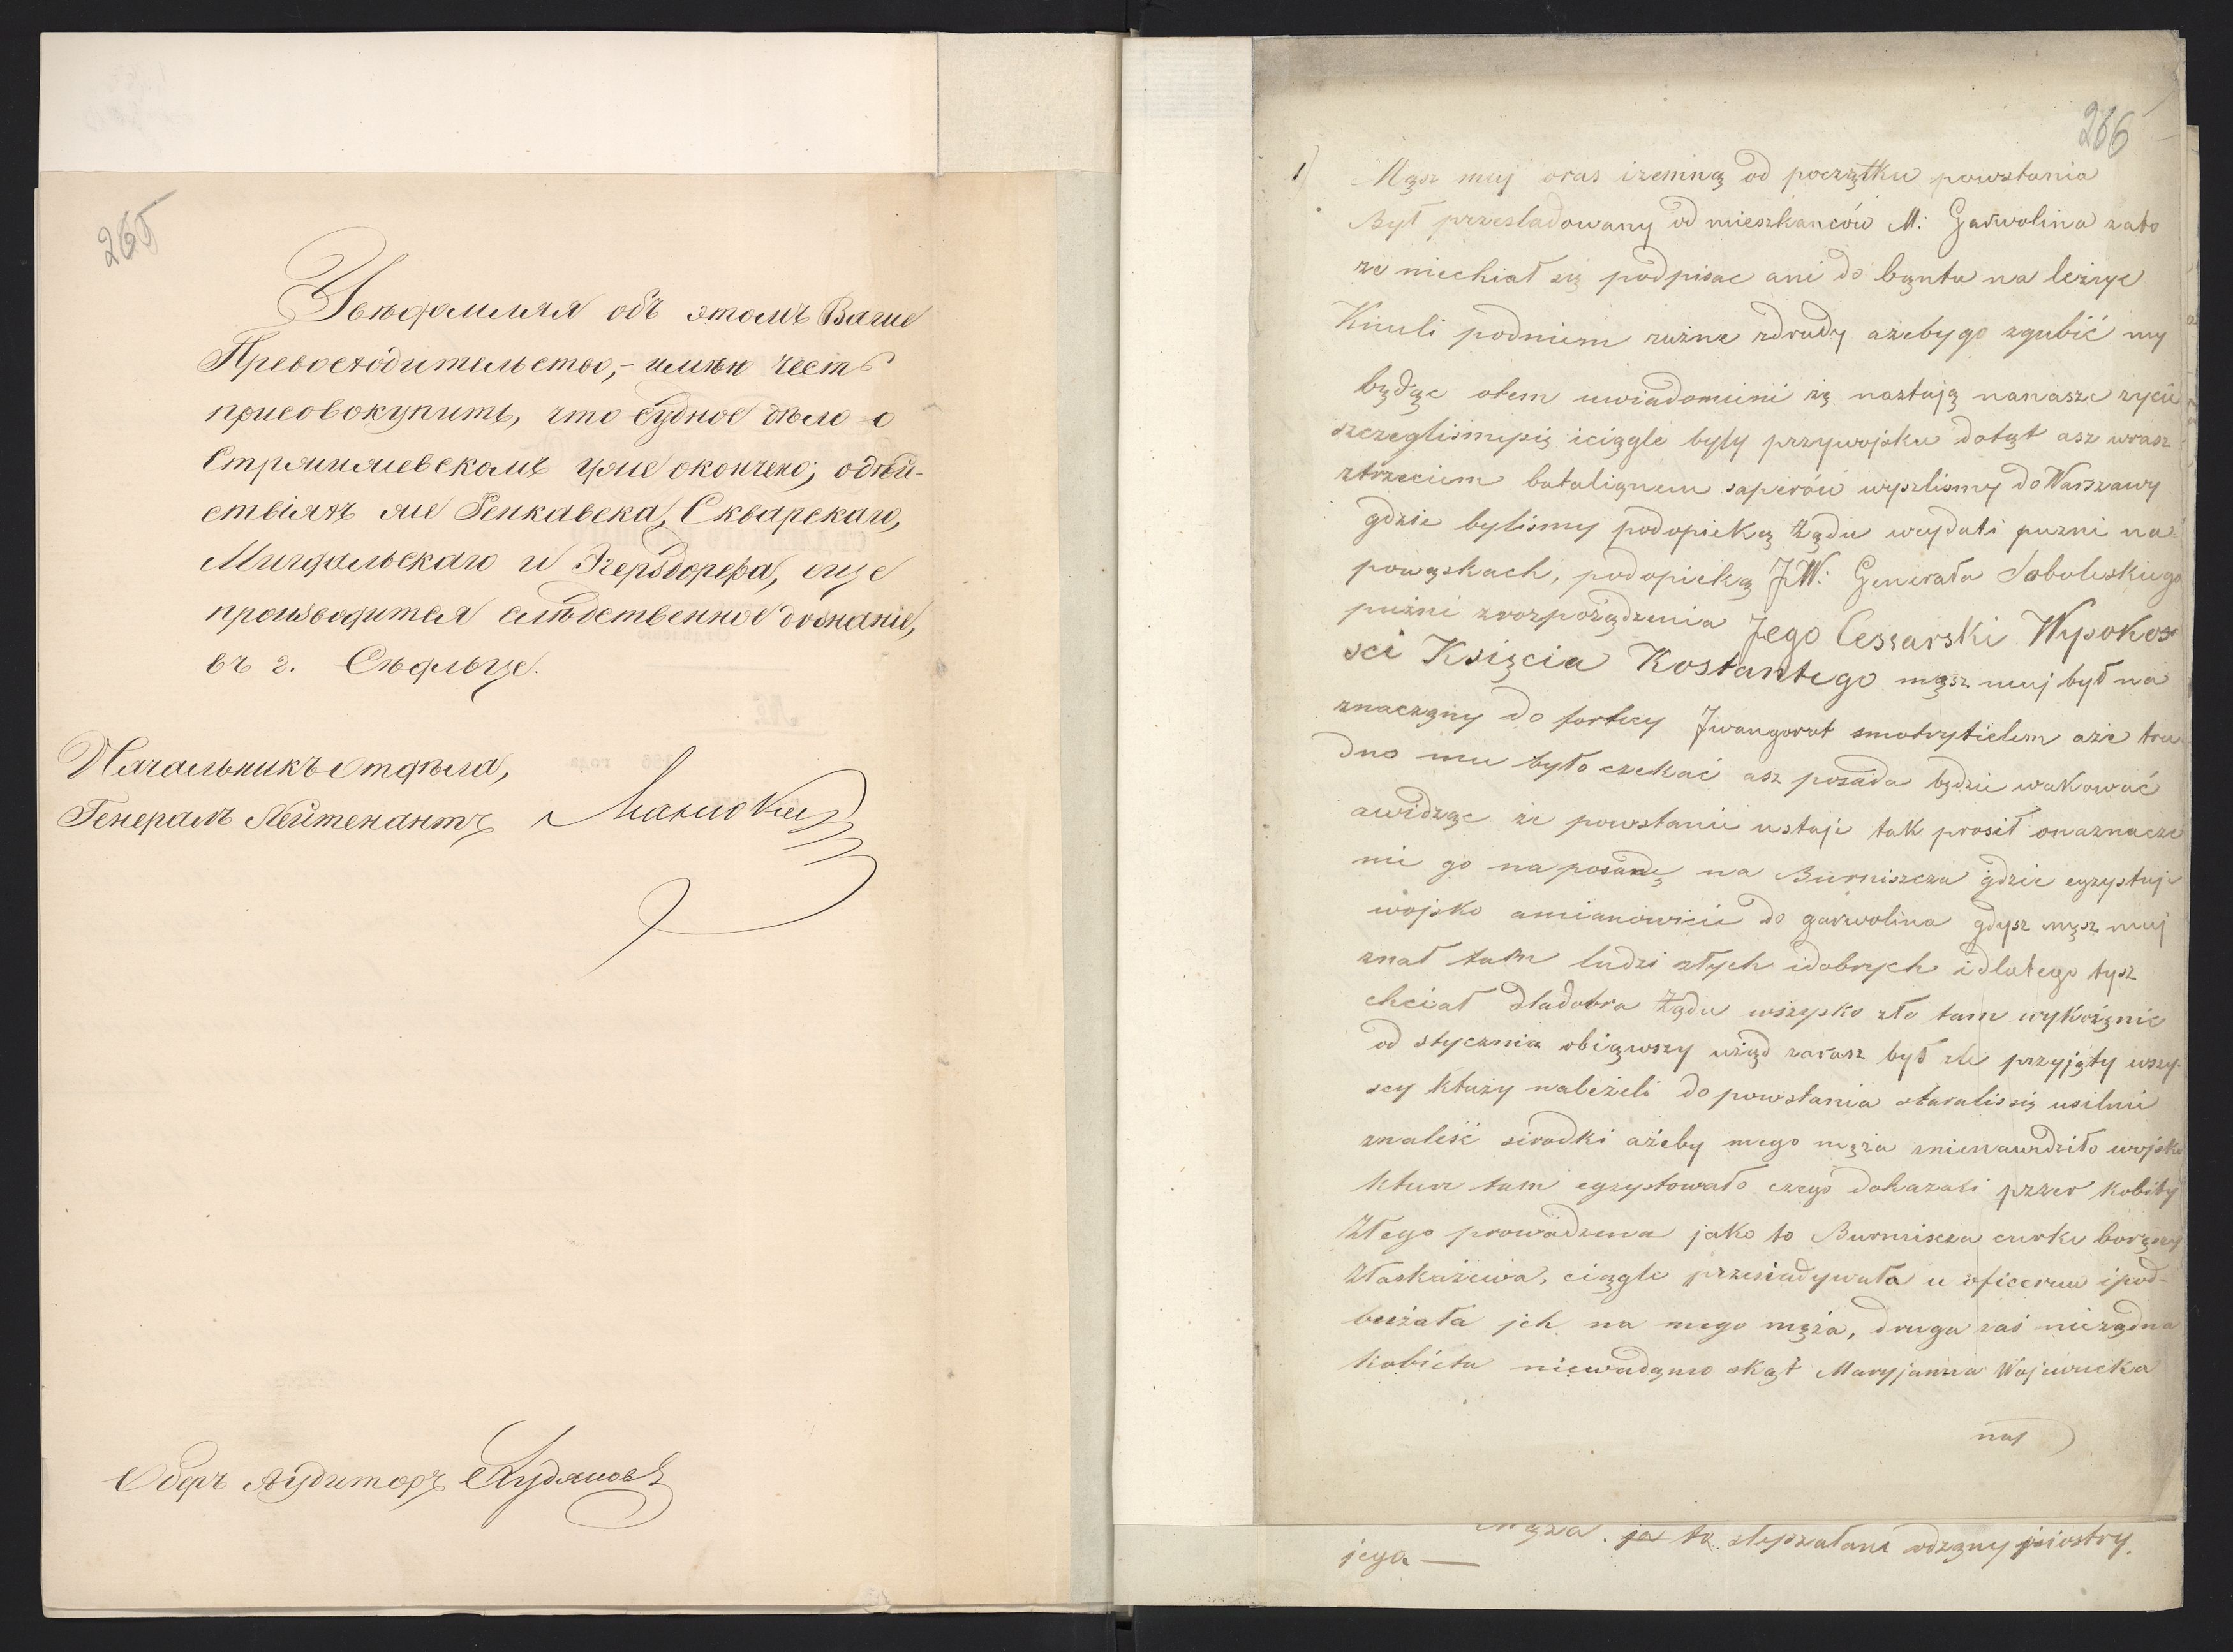 265
Увѣдомляя объ этомъ Ваше
Превосходительство,- имѣю честь
присовокупить, что судное дѣло о
уже окончено; о дѣй-
ствіяхъ же Генкавека, Скварскаго,
Мигдальскаго и еще
производится слѣдственное дознаніе,
въ г. Сѣдльце.
Начальникъ отдѣла,
Генералъ Лейтенантъ
Оберъ Аудиторъ
266
1) Mąsz muj oras izemną od początku powstania
Był przesladowany od mieszkanców M: Garwolina zato
ze niechiał się podpisac ani do bąntu na leżyc
Knuli podniem rużne zdrady ażebygo zgubić my
będąc otem uwiadomieni żę nastają nanasze życie
szczegliśmysię iciągle byly przywojsku dotąt asz wrasz
ztrzeciem bataliąnem saperów wyszlismy do Warszawy
gdzie bylismy podopieką Żądu wcydati puzni na
powąskach, podopieką JW: Generała Soboleskiego
pużni zrozpożądzenia Jego Cessarski Wysokos
sci Księcia Kostantego mąsz muj był na
znacząny do fortecy Jwangorot smotrytielem aże tru
dno mu było czekać asz posada będzie wakować
awidząc że powstanie ustaje tak prosił onaznacze
nie go na posadę na Burmiszcza gdzie egzystuje
wojsko amianowicie do garwolina gdysz mąsz muj
znał tam ludzi złych idobrych idlatego tysz
chciał dladobra Żądu wszysko zło tam wykożenic
od stycznia obiąwszy użąd zarasz był zle przyjęty wszy-
scy ktuży należeli do powstania staralissię usilnie
znaleść sirodki ażeby mego męża znienawidziło wojsko
kture tam egzystowało czego dokazali przez kobity
Złego prowadzenia jako to Burmiszcza curke
ciągle przesiadywała u oficeruw ipod-
bużała jch na mego męża, druga zaś nieżądna
kobieta niewadąmo skąt Maryjanna Wojewucka
naj
męża. ja ta odząny siostry.
jego —